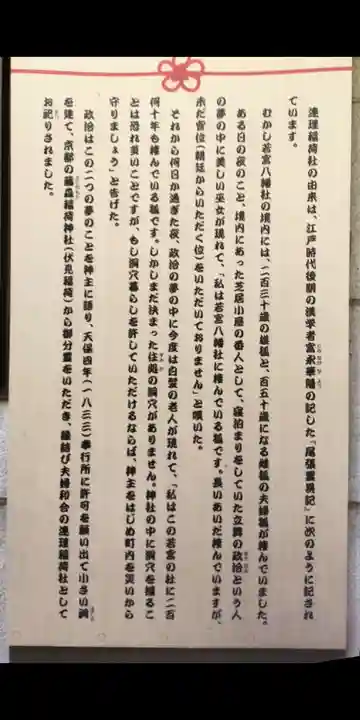 連理稲荷社の由来は、江戸時代後期の漢学者富永華陽の記した「尾張霊異記」に次のように記され
ています。
むかし若宮八幡社の境内には、二百三十歳の雄狐と、百五十歳になる雌狐の夫婦狐が棲んでいました。
ある日の夜のこと、境内にあった芝居小屋の番人として、寝泊まりをしていた立舞の政治という人
の夢の中に美しい巫女が現れて、「私は若宮八幡社に棲んでいる狐です。長いあいだ棲んでいますが、
未だ官位（朝廷からいただく位）をいただいておりません」と嘆いた。
それから何日か過ぎた夜、政治の夢の中に今度は白髪の老人が現れて、「私はこの若宮の社に二百
何十年も棲んでいる狐です。しかしまだ決まった住処の洞穴がありません。神社の中に洞穴を掘るこ
とは恐れ多いことですが、もし洞穴暮らしを許していただけるならば、神主をはじめ町内を災いから
守りましょう」と告げた。
政治はこの二つの夢のことを神主に語り、天保四年（一八三三）奉行所に許可を願い出て小さい祠
を建て、京都の藤森稲荷神社（伏見稲荷）から御分霊をいただき、縁結び夫婦和合の連理稲荷社として
お祀りされました。